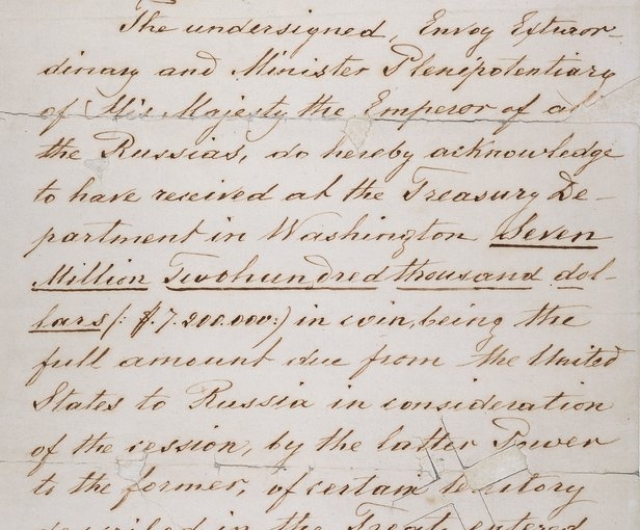 The undersigned, Envoy Extraor-
dinary and Minister Plenipotentiary
of His Majesty the Emperor of all
the Russias, do hereby acknowledge
to have received at the Treasury De-
partment in Washington Seven
Million Twohundred thousand dol-
lars (: $.7.200.000 :) in coin, being the
full amount due from the United
States to Russia in consideration
of the cession, by the latter Power
to the former, of certain territory
described in the Treaty entered